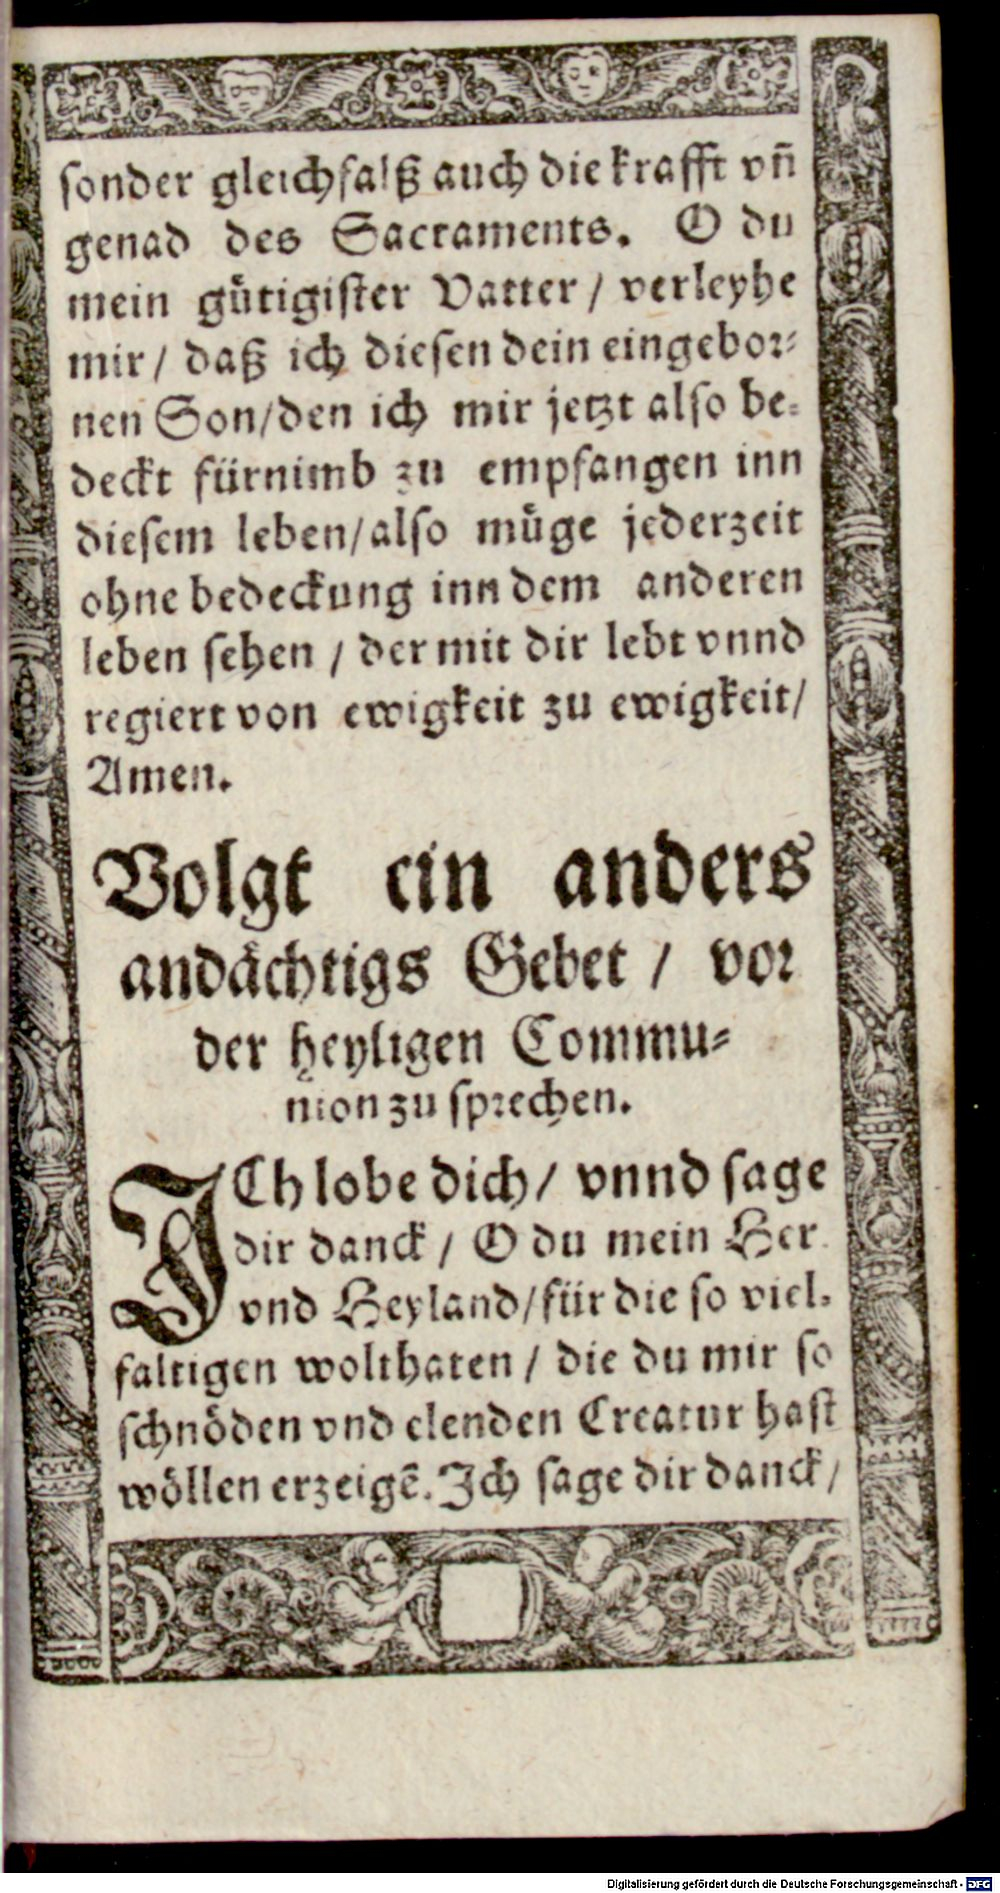 sonder gleichfalß auch die krafft vñ
genad des Sacraments. O du
mein gütigister Vatter / verleyhe
mir / daß ich diesen dein eingebor-
nen Son/den ich mir jetzt also be-
deckt fürnimb zu empfangen inn
diesem leben/also müge jederzeit
ohne bedeckung inn dem anderen
leben sehen / der mit dir lebt vnnd
regiert von ewigkeit zu ewigkeit/
Amen.
Volgt ein anders
andächtigs Gebet / vor
der heyligen Commu-
nion zu sprechen.
ICh lobe dich / vnnd sage
dir danck / O du mein Her
vnd Heyland/für die so viel-
faltigen wolthaten / die du mir so
schnöden vnd elenden Creatur hast
wöllen erzeigẽ. Ich sage dir danck /
Digitalisierung gefördert durch die Deutsche Forschungsgemeinschaft - DFG